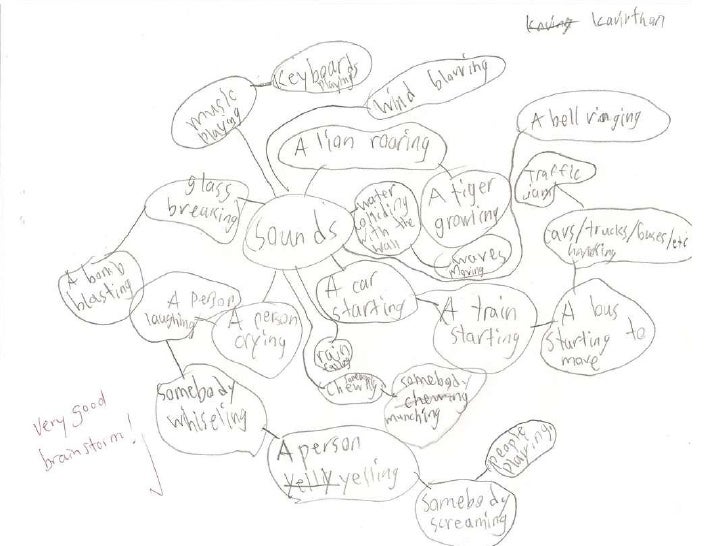 Kavirthan
keyboards
playing
music
playing
wind blowing
A lion roaring
A bell ringing
Traffic
jams
glass
breaking
sounds
water
coliding
with the
wall
A tiger
growling
waves
moving
cars/trucks/buses/etc
honking
A bomb
blasting
A person
laughing
A person
crying
A car
starting
A train
starting
A bus
starting to
move
rain
chewing
somebody
chewing
munching
somebody
whiseling
very good
brainstorm!
A person
yelly yelling
people
playing
somebody
screaming